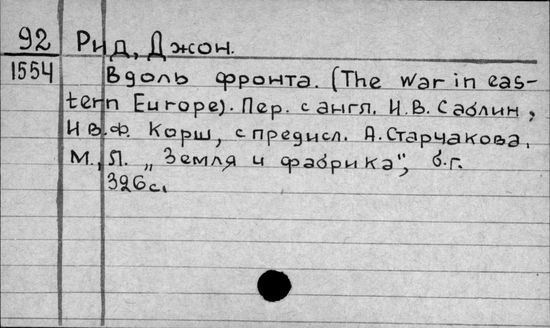 92 Рид, Джон.
1554 Вдоль фронта. (The war in eas-
tern Europe). Пер. с англ. И.В. Саблин,
И в.ф. Корш, с предисл. А.Старчакова.
М., Л. „Земля и фабрика", б.г.
326с.